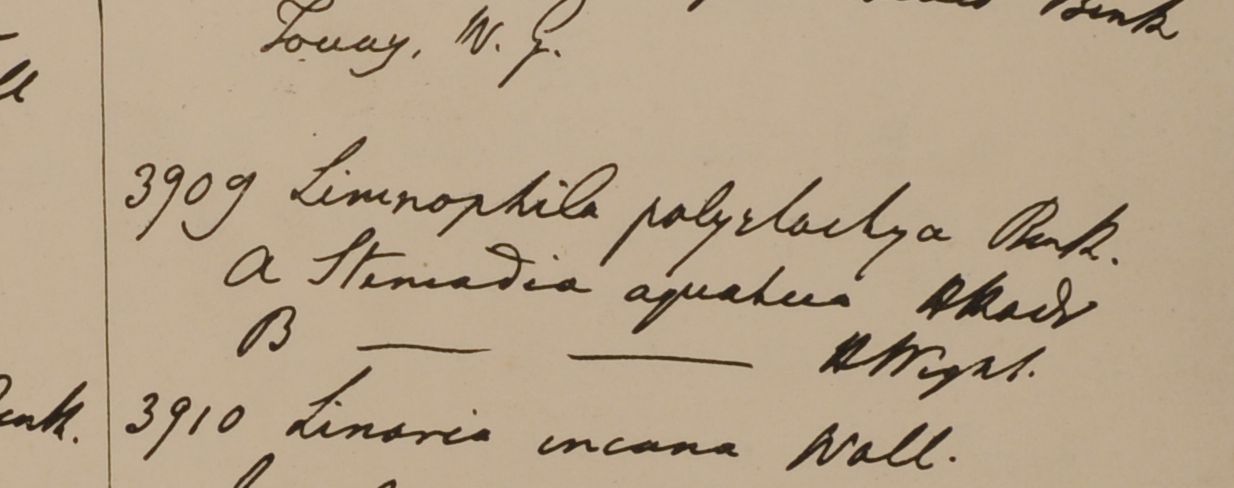 Benth
Tovay, W. G.
3909 Limnophila polystachya Benth.
a Stemodia aquatica HMadr
B — — HWight.
enth. 3910 Linaria incana Wall.